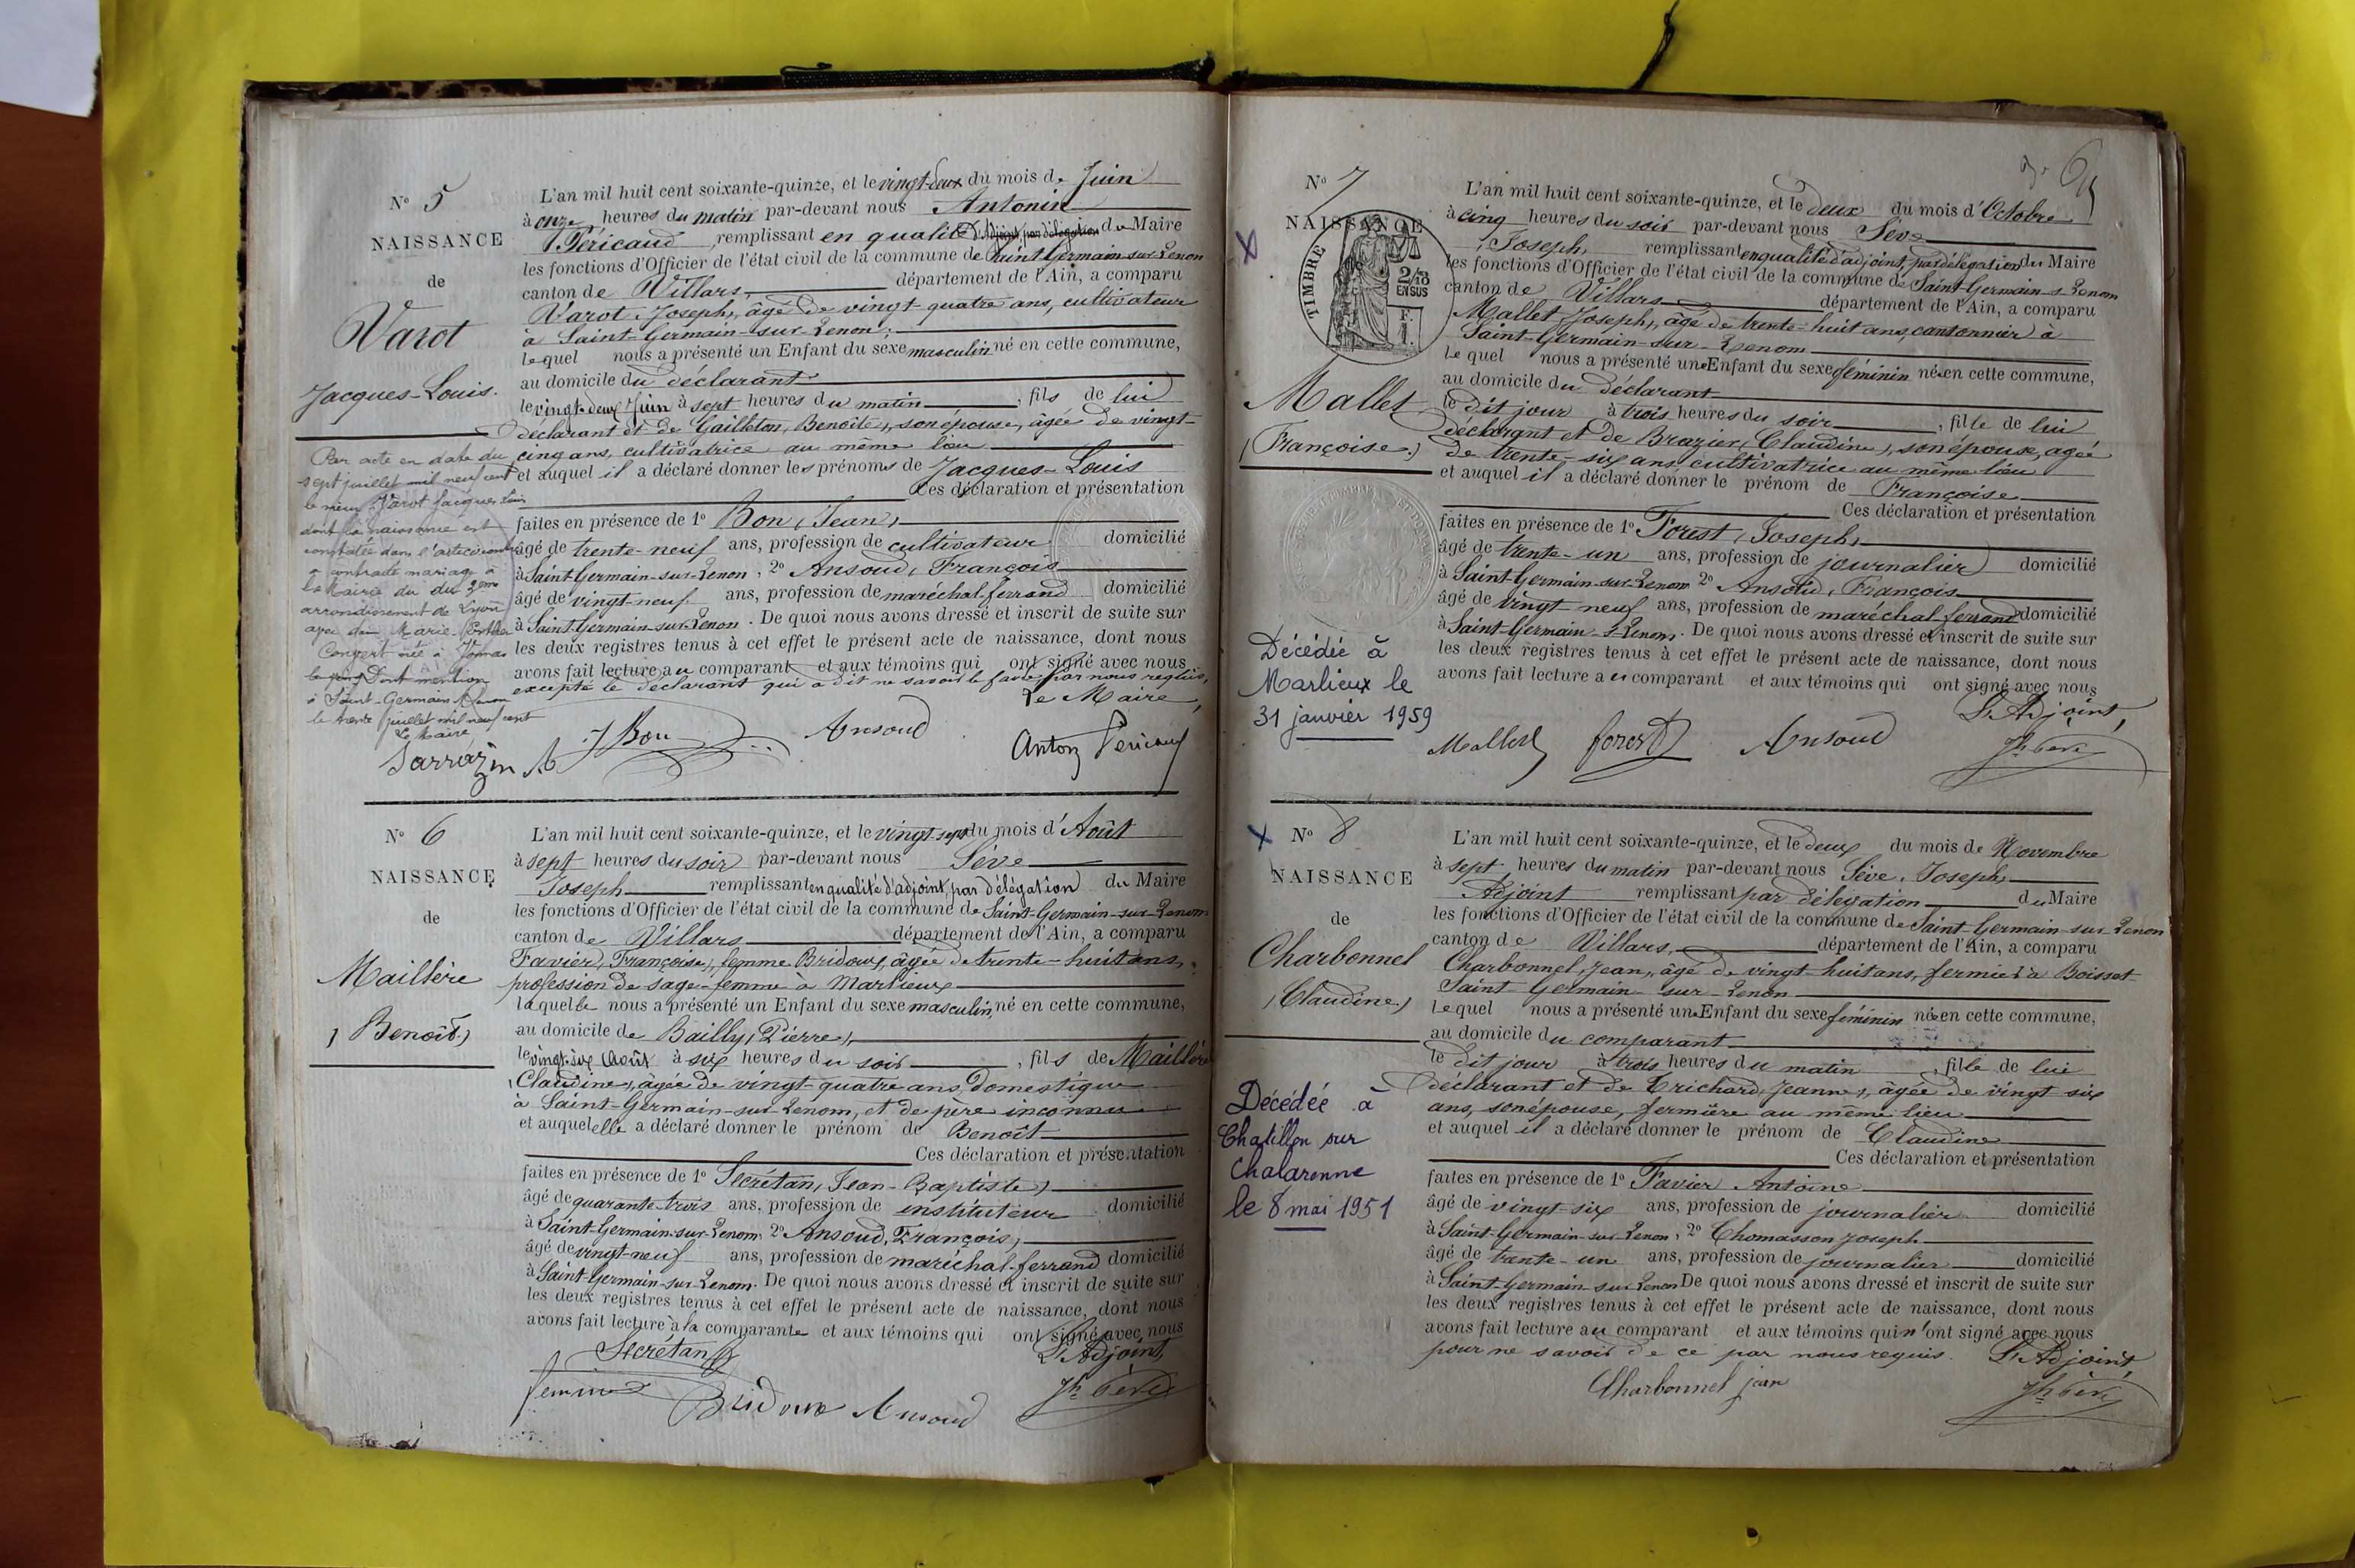 N° 5
NAISSANCE
de
Varot
Jacques-Louis.
L'an mil huit cent soixante-quinze, et le vingt-deux du mois de Juin
à onze heures du matin par-devant nous Antonin
Péricaud, remplissant en qualité d'adjoint, par délégation du Maire
les fonctions d'Officier de l'état civil de la commune de Saint-Germain-sur-Renon
canton de Villars, département de l'Ain, a comparu
Varot, Joseph, âgé de vingt-quatre ans, cultivateur
à Saint-Germain-sur-Renon.
lequel nous a présenté un Enfant du sexe masculin né en cette commune,
au domicile du déclarant
le vingt-deux Juin à sept heures du matin, fils de lui
déclarant et de Gailleton, Benoite, son épouse, âgée de vingt-
cinq ans, cultivatrice au même lieu
et auquel il a déclaré donner les prénoms de Jacques-Louis
Ces déclaration et présentation
faites en présence de 1° Bon, (Jean),
âgé de trente-neuf ans, profession de cultivateur domicilié
à Saint-Germain-sur-Renon, 2° Ansoud, François
âgé de vingt-neuf ans, profession de maréchal-ferrand domicilié
à Saint-Germain-sur-Renon. De quoi nous avons dressé et inscrit de suite sur
les deux registres tenus à cet effet le présent acte de naissance, dont nous
avons fait lecture au comparant et aux témoins qui ont signé avec nous
excepté le déclarant qui a dit ne savoir le faire par nous requis,
Le Maire,
J Bon Ansoud Anton Pericaud
Par acte en date du
sept juillet mil neuf cent
le sieur Varot Jacques Louis
dont la naissance est
constatée dans l'acte ci-contre
a contracté mariage à
la Mairie du du 2eme
arrondissement de Lyon
avec Marie
Convert née à
Dont mention
à Saint-Germain s/ Renon
le trente juillet mil neuf cent
Le Maire
Sarrazin
N° 6
NAISSANCE
de
Maillère
(Benoît)
L'an mil huit cent soixante-quinze, et le vingt-sept du mois d'Août
à sept heures du soir par-devant nous Sève
Joseph remplissant en qualité d'adjoint, par délégation du Maire
les fonctions d'Officier de l'état civil de la commune de Saint-Germain-sur-Renom
canton de Villars département de l'Ain, a comparu
Favier, (Françoise), femme Bridoux, âgée de trente-huit ans,
profession de sage-femme à Marlieux
laquelle nous a présenté un Enfant du sexe masculin, né en cette commune,
au domicile de Bailly, (Pierre),
le vingt-six Août à six heures du soir, fils de Maillère
(Claudine), âgée de vingt-quatre ans, Domestique
à Saint-Germain-sur-Renom, et de père inconnu
et auquel elle a déclaré donner le prénom de Benoît
Ces déclaration et présentation
faites en présence de 1° Secrétan, (Jean-Baptiste)
âgé de quarante-trois ans, profession de instituteur domicilié
à Saint-Germain-sur-Renom, 2° Ansoud, François,
âgé de vingt-neuf ans, profession de maréchal-ferrand domicilié
à Saint-Germain-sur-Renom. De quoi nous avons dressé et inscrit de suite sur
les deux registres tenus à cet effet le présent acte de naissance, dont nous
avons fait lecture à la comparante et aux témoins qui ont signé avec nous
Secrétan L'Adjoint,
femme Bridoux Ansoud Jh Sève
N° 7
NAISSANCE
TIMBRE
2/10
EN SUS
F.
Mallet
(Françoise.)
L'an mil huit cent soixante-quinze, et le deux du mois d'Octobre
à cinq heures du soir par-devant nous Sève
(Joseph, remplissant en qualité d'adjoint, par délégation du Maire
les fonctions d'Officier de l'état civil de la commune de Saint-Germain-s-Renom
canton de Villars département de l'Ain, a comparu
Mallet, Joseph, âgé de trente-huit ans, cantonnier à
Saint-Germain-sur-Renom
lequel nous a présenté une Enfant du sexe féminin née en cette commune,
au domicile du déclarant
le dit jour à trois heures du soir, fille de lui
déclarant et de Brazier, (Claudine), son épouse, agée
de trente-six ans, cultivatrice au même lieu
et auquel il a déclaré donner le prénom de Françoise
Ces déclaration et présentation
faites en présence de 1° Forest, Joseph,
âgé de trente-un ans, profession de journalier domicilié
à Saint-Germain-sur-Renom 2° Ansoud, François
âgé de vingt-neuf ans, profession de maréchal-ferrand domicilié
à Saint-Germain-s-Renom. De quoi nous avons dressé et inscrit de suite sur
les deux registres tenus à cet effet le présent acte de naissance, dont nous
avons fait lecture au comparant et aux témoins qui ont signé avec nous
L'Adjoint,
Mallet forest Ansoud Jh Sève
Décédée à
Marlieux le
31 janvier 1959
N° 8
NAISSANCE
de
Charbonnel
(Claudine.)
L'an mil huit cent soixante-quinze, et le deux du mois de Novembre
à sept heures du matin par-devant nous Sève, Joseph,
Adjoint remplissant par délégation du Maire
les fonctions d'Officier de l'état civil de la commune de Saint-Germain-sur-Renon
canton de Villars, département de l'Ain, a comparu
Charbonnel, Jean, âgé de vingt-huit ans, fermier à Boisset
Saint-Germain-sur-Renon
lequel nous a présenté une Enfant du sexe féminin née en cette commune,
au domicile du comparant
le dit jour à trois heures du matin, fille de lui
déclarant et de Trichard, Jeanne, âgée de vingt six
ans, son épouse, fermière au même lieu
et auquel il a déclaré donner le prénom de Claudine
Ces déclaration et présentation
faites en présence de 1° Favier Antoine
âgé de vingt-six ans, profession de journalier domicilié
à Saint-Germain-sur-Renon, 2° Thomasson Joseph
âgé de trente-un ans, profession de journalier domicilié
à Saint-Germain-sur-Renon De quoi nous avons dressé et inscrit de suite sur
les deux registres tenus à cet effet le présent acte de naissance, dont nous
avons fait lecture au comparant et aux témoins qui n'ont signé avec nous
pour ne savoir de ce par nous requis. L'Adjoint,
Charbonnel jean Jh Sève
Décédée à
Chatillon sur
Chalaronne
le 8 mai 1951